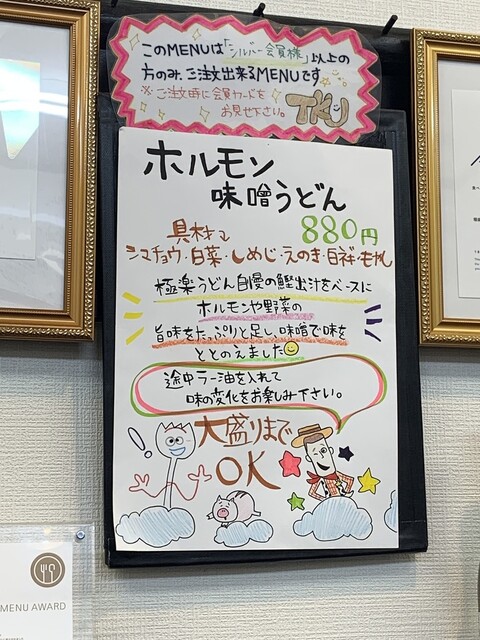 このMENUは「シルバー会員様」以上の
方のみ、ご注文出来るMENUです。
※ご注文時に会員カードを
お見せ下さい。
TKU
ホルモン
味噌うどん
880円
具材→
シマチョウ・白菜・しめじ・えのき・白ネギ・もやし
極楽うどん自慢の鰹出汁をベースに
ホルモンや野菜の
旨味をたっぷりと足し、味噌で味を
ととのえました
途中ラー油を入れて
味の変化をお楽しみ下さい。
大盛りまで
OK
MENU AWARD